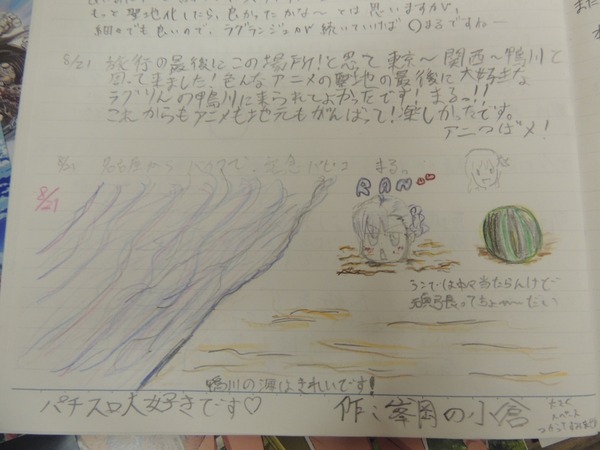 もっと聖地化したら、良かったかな〜とは思いますが、
細々でも良いので、ラグランジェが続いていけば○まるですねー
8/21 旅行の最後にこの場所!と思て東京〜関西〜鴨川と
回って来ました!色んなアニメの聖地の最後に大好きな
ラグりんの鴨川に来られてよかったです!まるっ!!
これからもアニメも地元もがんばって!楽しかったです。
アニつばメ!
まるっ
8/21
RAN
頑張ってちょーだい
鴨川の海はきれいです!
パチスロ大好きです♡
作:峯岡の小倉
大きく
スペース